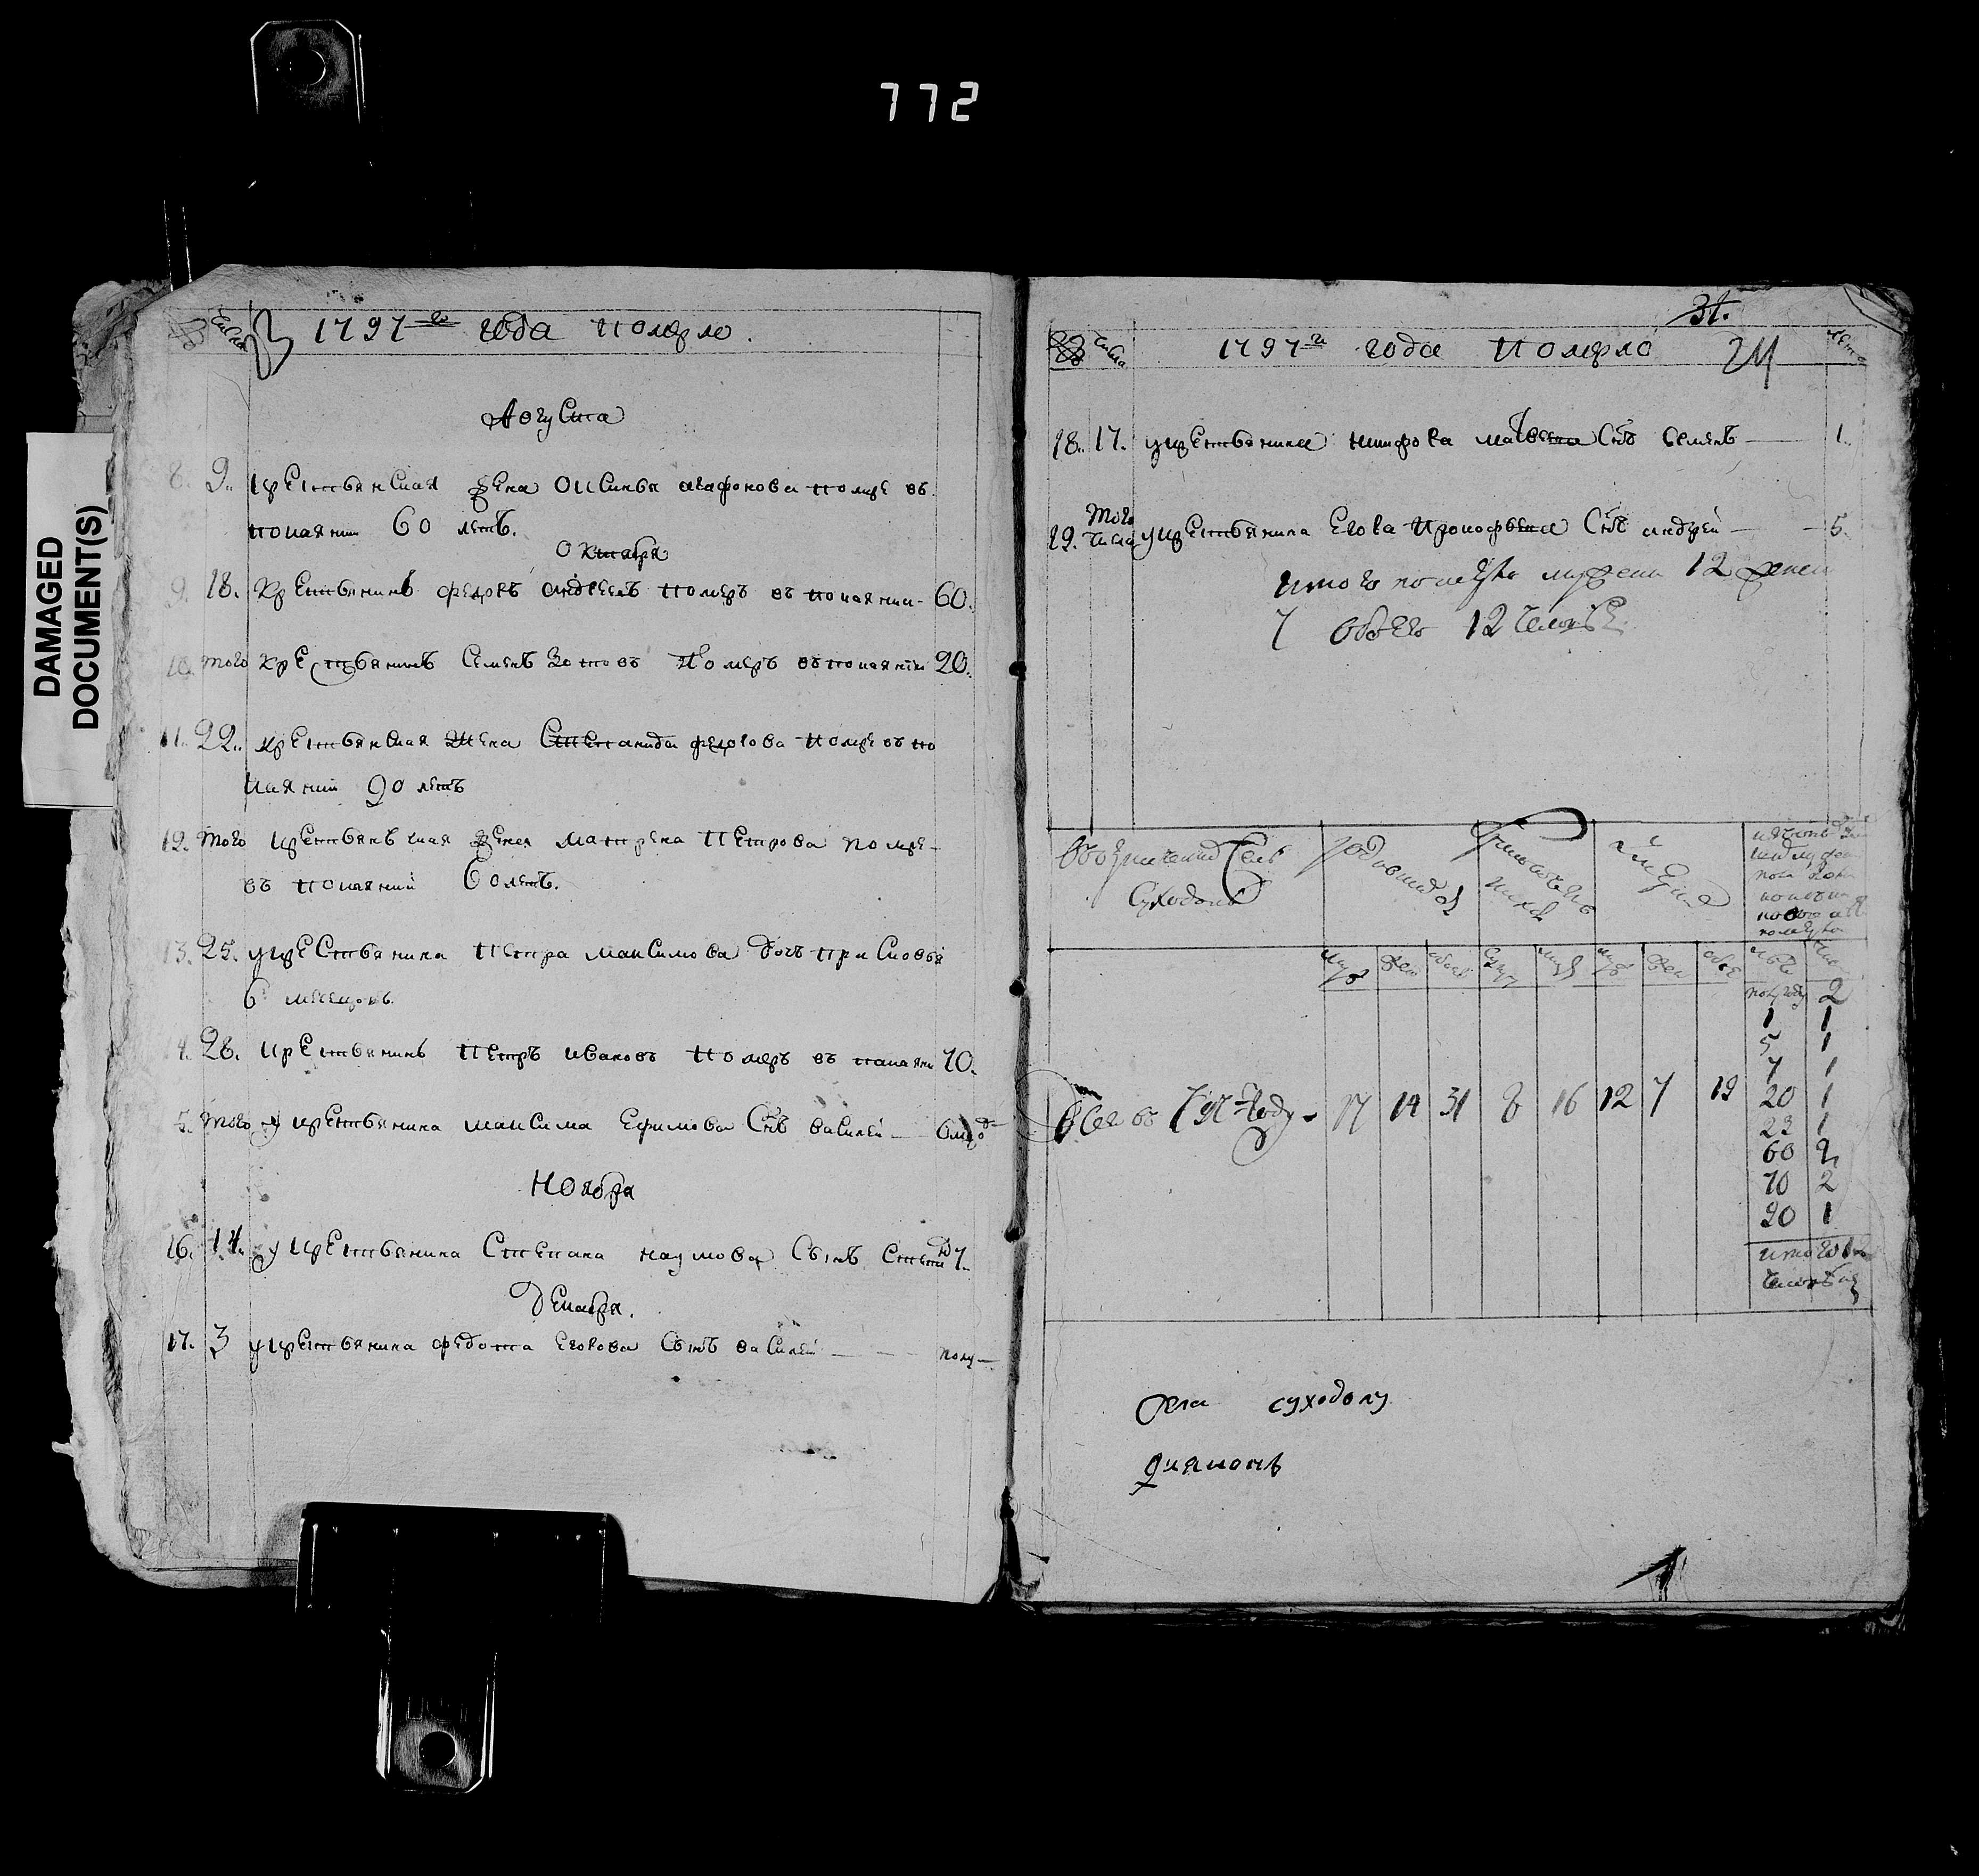 772
DAMAGED
DOCUMENT(S)
1797го года померло.
Августа
8. 9. крестьянская жена Аксинья агафонова помре въ
покаянии 60 летъ.
Октября
9. 18. Крестьянинъ федоръ андреевъ померъ въ покаянии 60.
10. того крестьянинъ Семенъ Зотовъ Померъ въ покаянии 20.
11. 22. крестьянская Жена Степанида федорова помре въ по
каянии 90 летъ
12. того крестьянъская жена матрена Петрова помре
въ покаянии 60 летъ.
13. 25. у крестьянина Петра максимова дочь
6 месецовъ.
14. 28. крестьянинъ Петръ ивановъ померъ въ покаянии 70.
5. того у крестьянина максима Ефимова Снъ василей
Ноября
16. 14. у крестьянина Степана наумова Сынъ 7.
Декабря.
17. 3 у крестьянина федота Егорова Сынъ василей полу
31.
числа 1797го года Померло лета
18. 17. у крестьянина матвеева Снъ Семенъ 1.
19. того числа у крестьянина Егора Прокофьева Снъ андрей 5.
итого мужеска 12 женска
7 обоего 12 человекъ.
Села
Суходолъ
родившихся
муж жен обоего муж жен обое
полугоду 2
1 1
5 1
7 1
Всего въ 797 году 17 14 31 8 16 12 7 19 20 1
23 1
60 2
70 2
90 1
итого
человекъ
Села суходолу
диаконъ